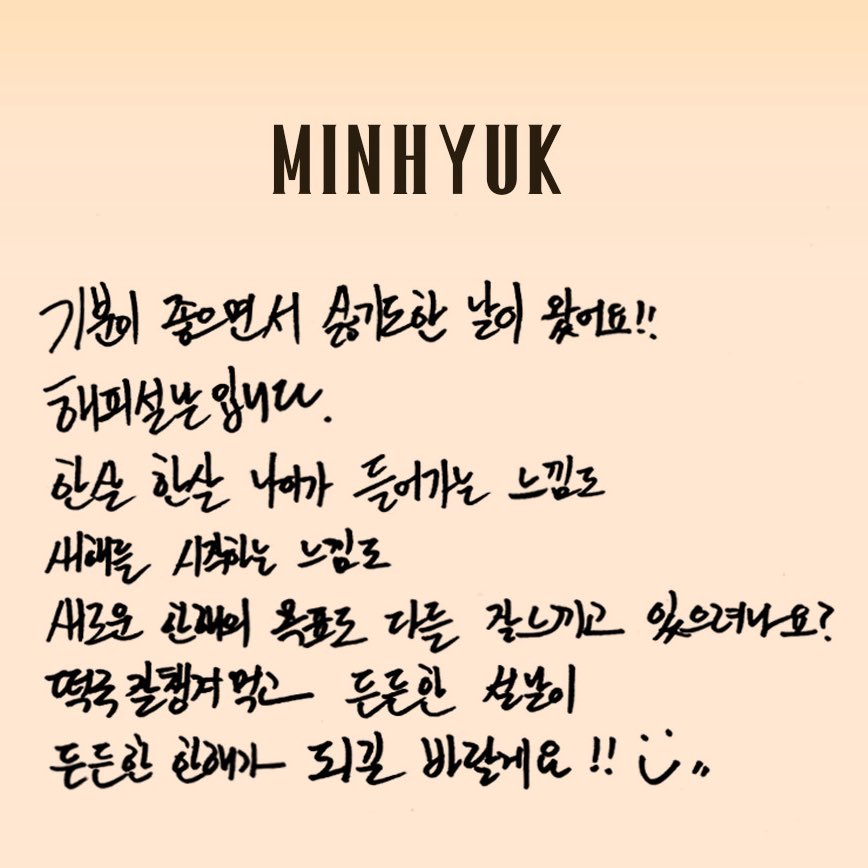 MINHYUK
기분이 좋으면서 싫기도한 날이 왔어요!!
해피설날입니다.
한살 한살 나이가 들어가는 느낌도
새해를 시작하는 느낌도
새로운 한해의 목표도 다들 잘느끼고 있으려나요?
떡국잘챙겨먹고 든든한 설날이
든든한 한해가 되길 바랄게요!!